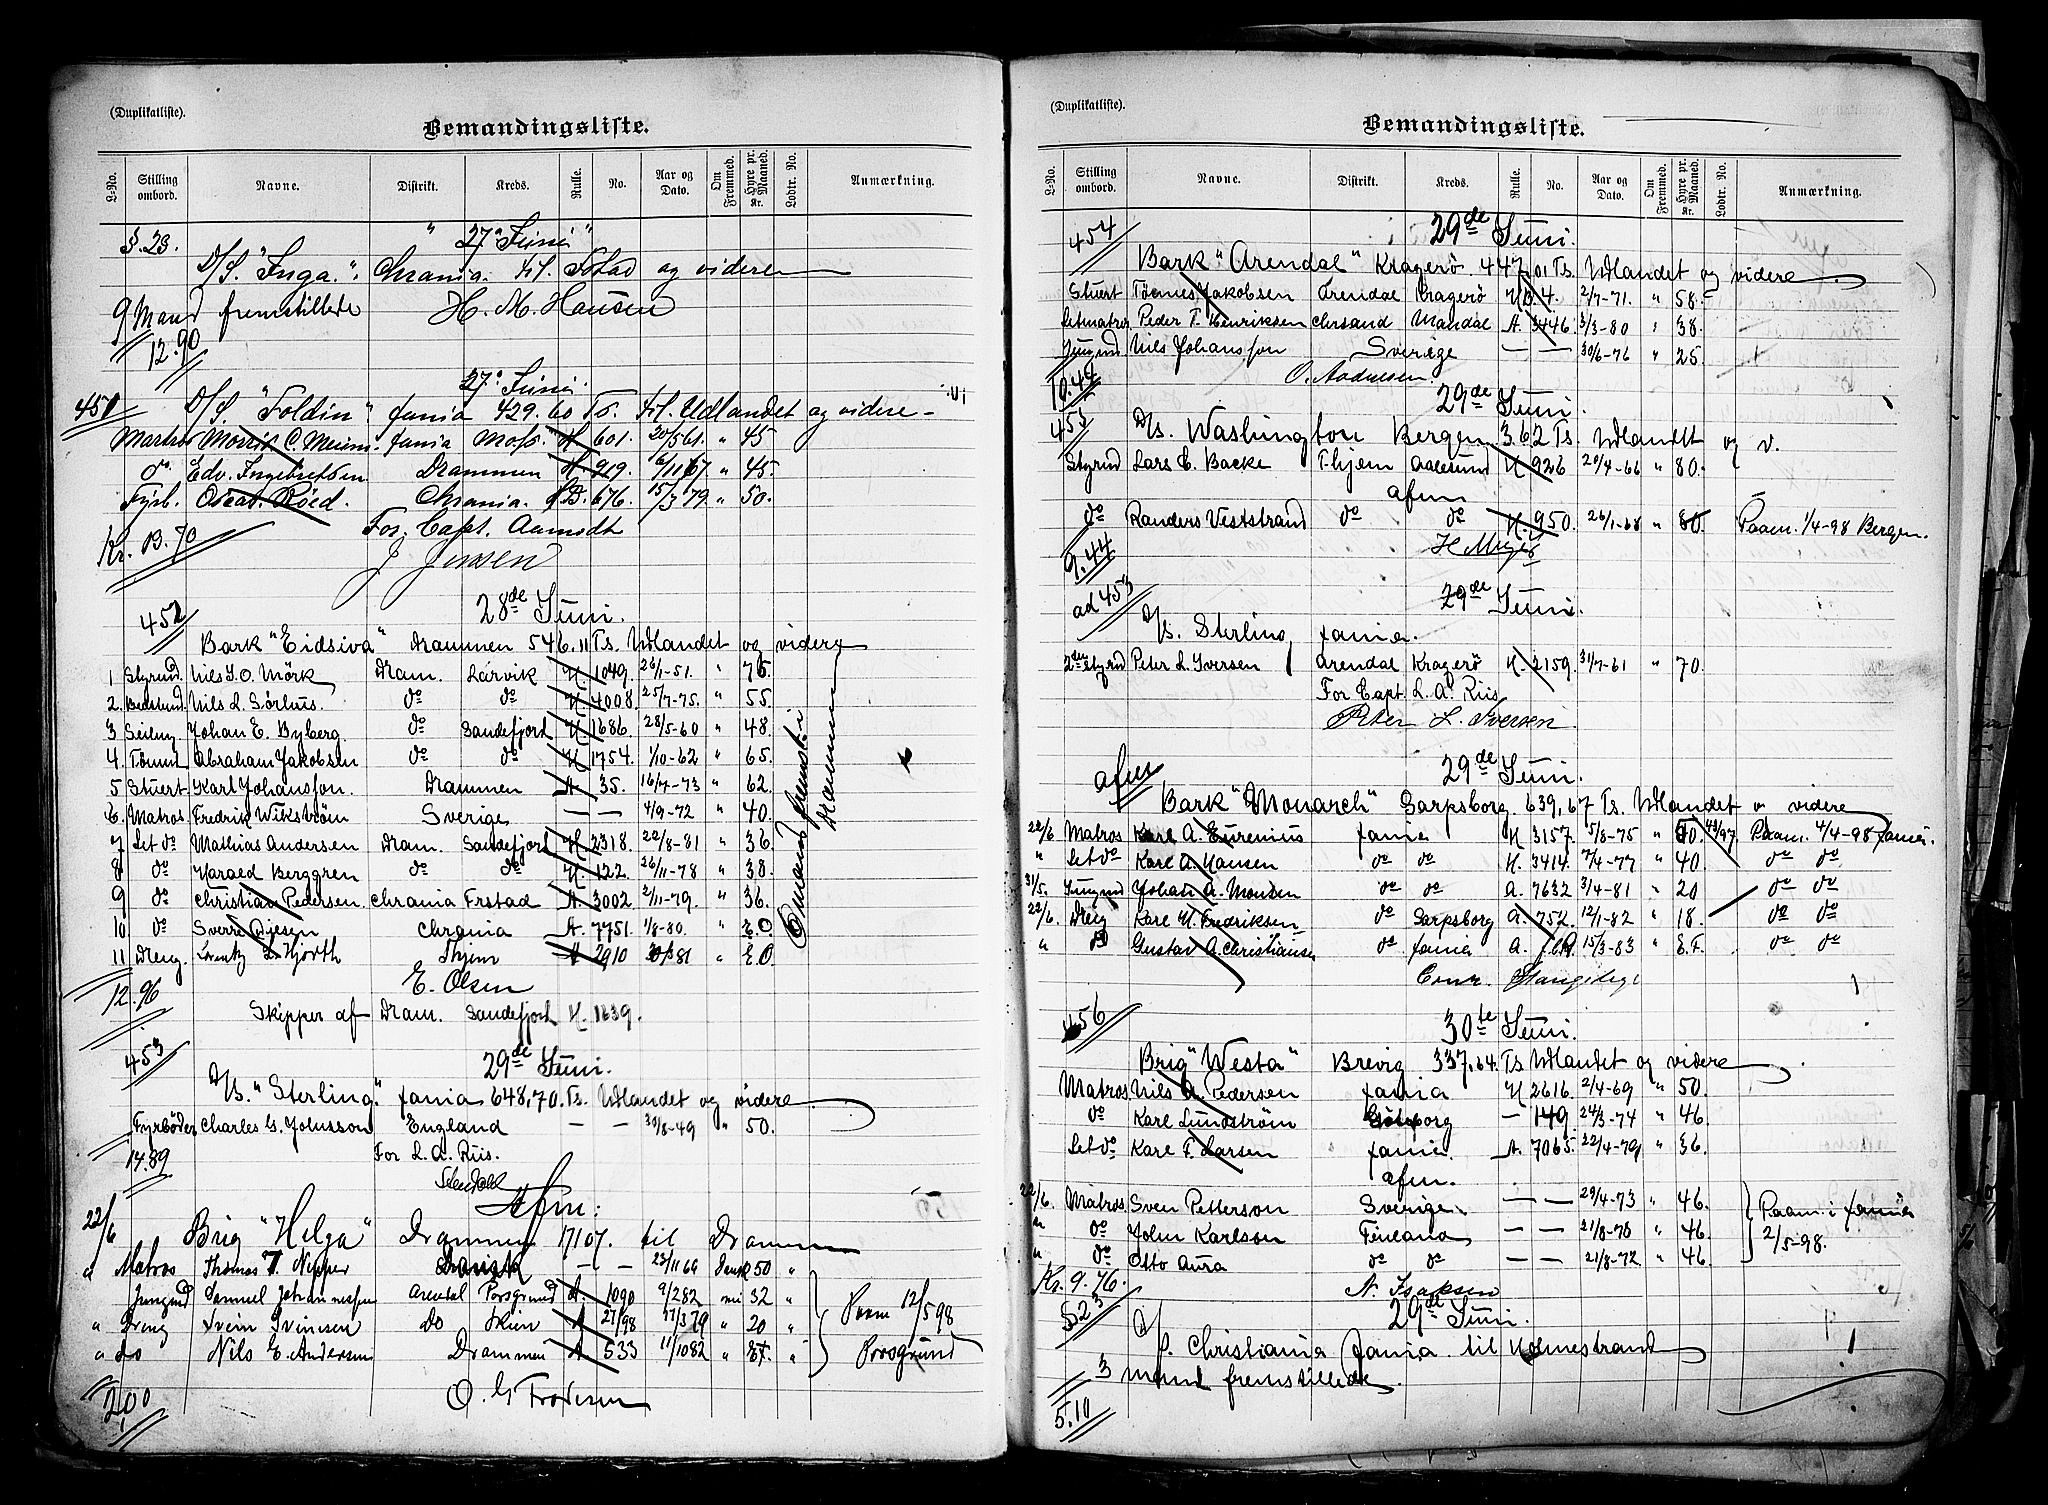 (Duplikatliste).
Bemandingsliste.
L-No. Stilling ombord. Navne. Distrikt. Kreds. Rulle. No. Aar og Dato. Om Fremmed. Hyre pr. Maaned. Kr. Lodtr. No. Anmærkning.
§. 23. " 27 Juni "
D/S. "Inga." Chrania. til. Sstad og videre
9 Mand fremstillede H. M. Hansen
12.90
27 Juni
451 D/S. "Foldin" fania 429.60 Ts. til. Udlandet og videre
Matros Morris C. fania Moss H 601. 20/5 61. " 45
do. Edv. Ingebretsen Drammen H. 919. 6/11 67 " 45.
Fyrb. Oscar Röed. Chrania. B. 676. 15/7 79. " 50.
Kr. 13.70 For Capt. Aamodt
J Jensen
452 28de Juni.
Bark "Eidsiva" Drammen 546.11 Ts. Udlandet og videre
1 Styrmd. Nils J. O. Mörk Dram. Larvik H 1049. 26/1-51. " 75.
2. Bedstmd. Nils L. Sörhus. do do H 4008. 25/7-75. " 55.
3 Seilmg Johan E. Byberg. do Sandefjord H 1686. 28/5-60 " 48.
4. Tömmd Abraham Jakobsen do do H 1754. 1/10-62 " 65.
5 Stuert. Karl Johansson. Drammen A 35. 16/7-73 " 62.
6. Matros. Fredrik Wikström Sverige — — 4/9-72 " 40.
7 Let do Mathias Andersen Dram. Sandefjord H 2318. 22/8-81 " 36.
8 do Harald Berggren do do H. 122. 26/11-78 " 38.
9 do Christian Pedersen. Chrania Frstad A 3002 2/11-79. " 36.
10 do Sverre Olesen Chrania A. 7751. 1/8-80. "
11 Dreng. Lorentz L. Hjorth Thjem A 2910 81 "
6 mand fremst i Drammen
12.96 E. Olsen
Skipper af Dram. Sandefjord H. 1639.
453 29de Juni.
D/S. "Sterling." fania 648,70. Ts. Udlandet og videre
Fyrböder Charles G. Johnsson England — — 30/8-49 " 50.
14.89 For L. A. Riis.
Afm:
22/6 Brig "Helga" Drammen 171 07. til Drammen
" Matros Thomas T. Nipper Dansk — — 23/11 66 Dansk 50 "
Jungmd Samuel Johannessen Arendal Porsgrund A. 1090 9/2 82 nei 32 "
" Dreng Svein Svinesen Do Skien A 27/98 17/3 79 " 20 "
" do Nils E. Andersen Drammen A 533 11/10 82 "
Paam 12/5 98 Porsgrund
2,00 O. G. Frodesen
(Duplikatliste).
Bemandingsliste.
L-No. Stilling ombord. Navne. Distrikt. Kreds. Rulle. No. Aar og Dato. Om Fremmed. Hyre pr. Maaned. Kr. Lodtr. No. Anmærkning.
454 29de Juni.
Bark "Arendal" Kragerö 447.01 Ts. Udlandet og videre
Stuert Tönnes Jakobsen Arendal Kragerö 4. 2/7-71. " 58.-
Letmatros Peder T. Henriksen Chrsand Mandal A. 3446 3/3-80 " 38.
Jungmd Nils Johansson Sverige — — 30/6-76 " 25
10.44 O. Aadnesen.
29de Juni.
453 D/S. Washington Bergen 3.62 Ts. Udlandet og v.
Styrmd Lars C. Backe T-hjem Aalesund H 926 20/4-66 " 80.
afm
do Randers Veststrand do do H. 950. 26/1-68 " 80. Paam. 1/4-98 Bergen.
9.44 H. Meyer
ad 453 29de Juni.
D/S. Sterling fania.
2den Styrmd Peter L. Iversen Arendal Kragerö H. 2159. 31/7-61 " 70.
For Capt. L. A. Riis
Peter L. Iversen
afm 29de Juni.
Bark "Monarch" Sarpsborg. 639,67 Ts. Udlandet v videre
22/6 Matros Karl A. Eurenius fania H 3157. 5/8-75 " Paam. 4/4-98 fania.
" Let do Karl A. Hansen do do H. 3414. 7/4-77 " 40 do do
31/5. Jungmd Johan A. Monsen do do A. 7632 3/4-81 " 20 do do
22/6. Dreng Karl H. Fredriksen do Sarpsborg A. 752. 12/1-82 " 18. do do
" do Gustav A. Christiansen do fania A. 15/3-83 " E.F. do do
456 30te Juni.
Brig "Westa" Brevig 337.64. Ts Udlandet og videre
Matros. Nils A. Pedersen fania H 2616. 2/4-69 " 50.
do Karl Lundström Göteborg — 149. 24/3-74 " 46.
Let do Karl F. Larsen fania. A. 7065. 22/4-79 " 36.
afm.
22/6. Matros. Sven Petterson Sverige — — 29/4-73 " 46.
" do John Karlsson Finland — — 21/8-78 " 46.
" do Otto Aura do do — — 21/8-72 " 46.
Paam. i fania 2/5-98.
Kr. 9.76. A. Isaksen
§23 29de Juni.
D/S. Christiania fania. til Holmestrand
3 mand fremstillede.
5.10